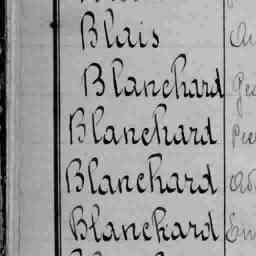 Blais
Blanchard Ge
Blanchard Pie
Blanchard
Blanchard Em